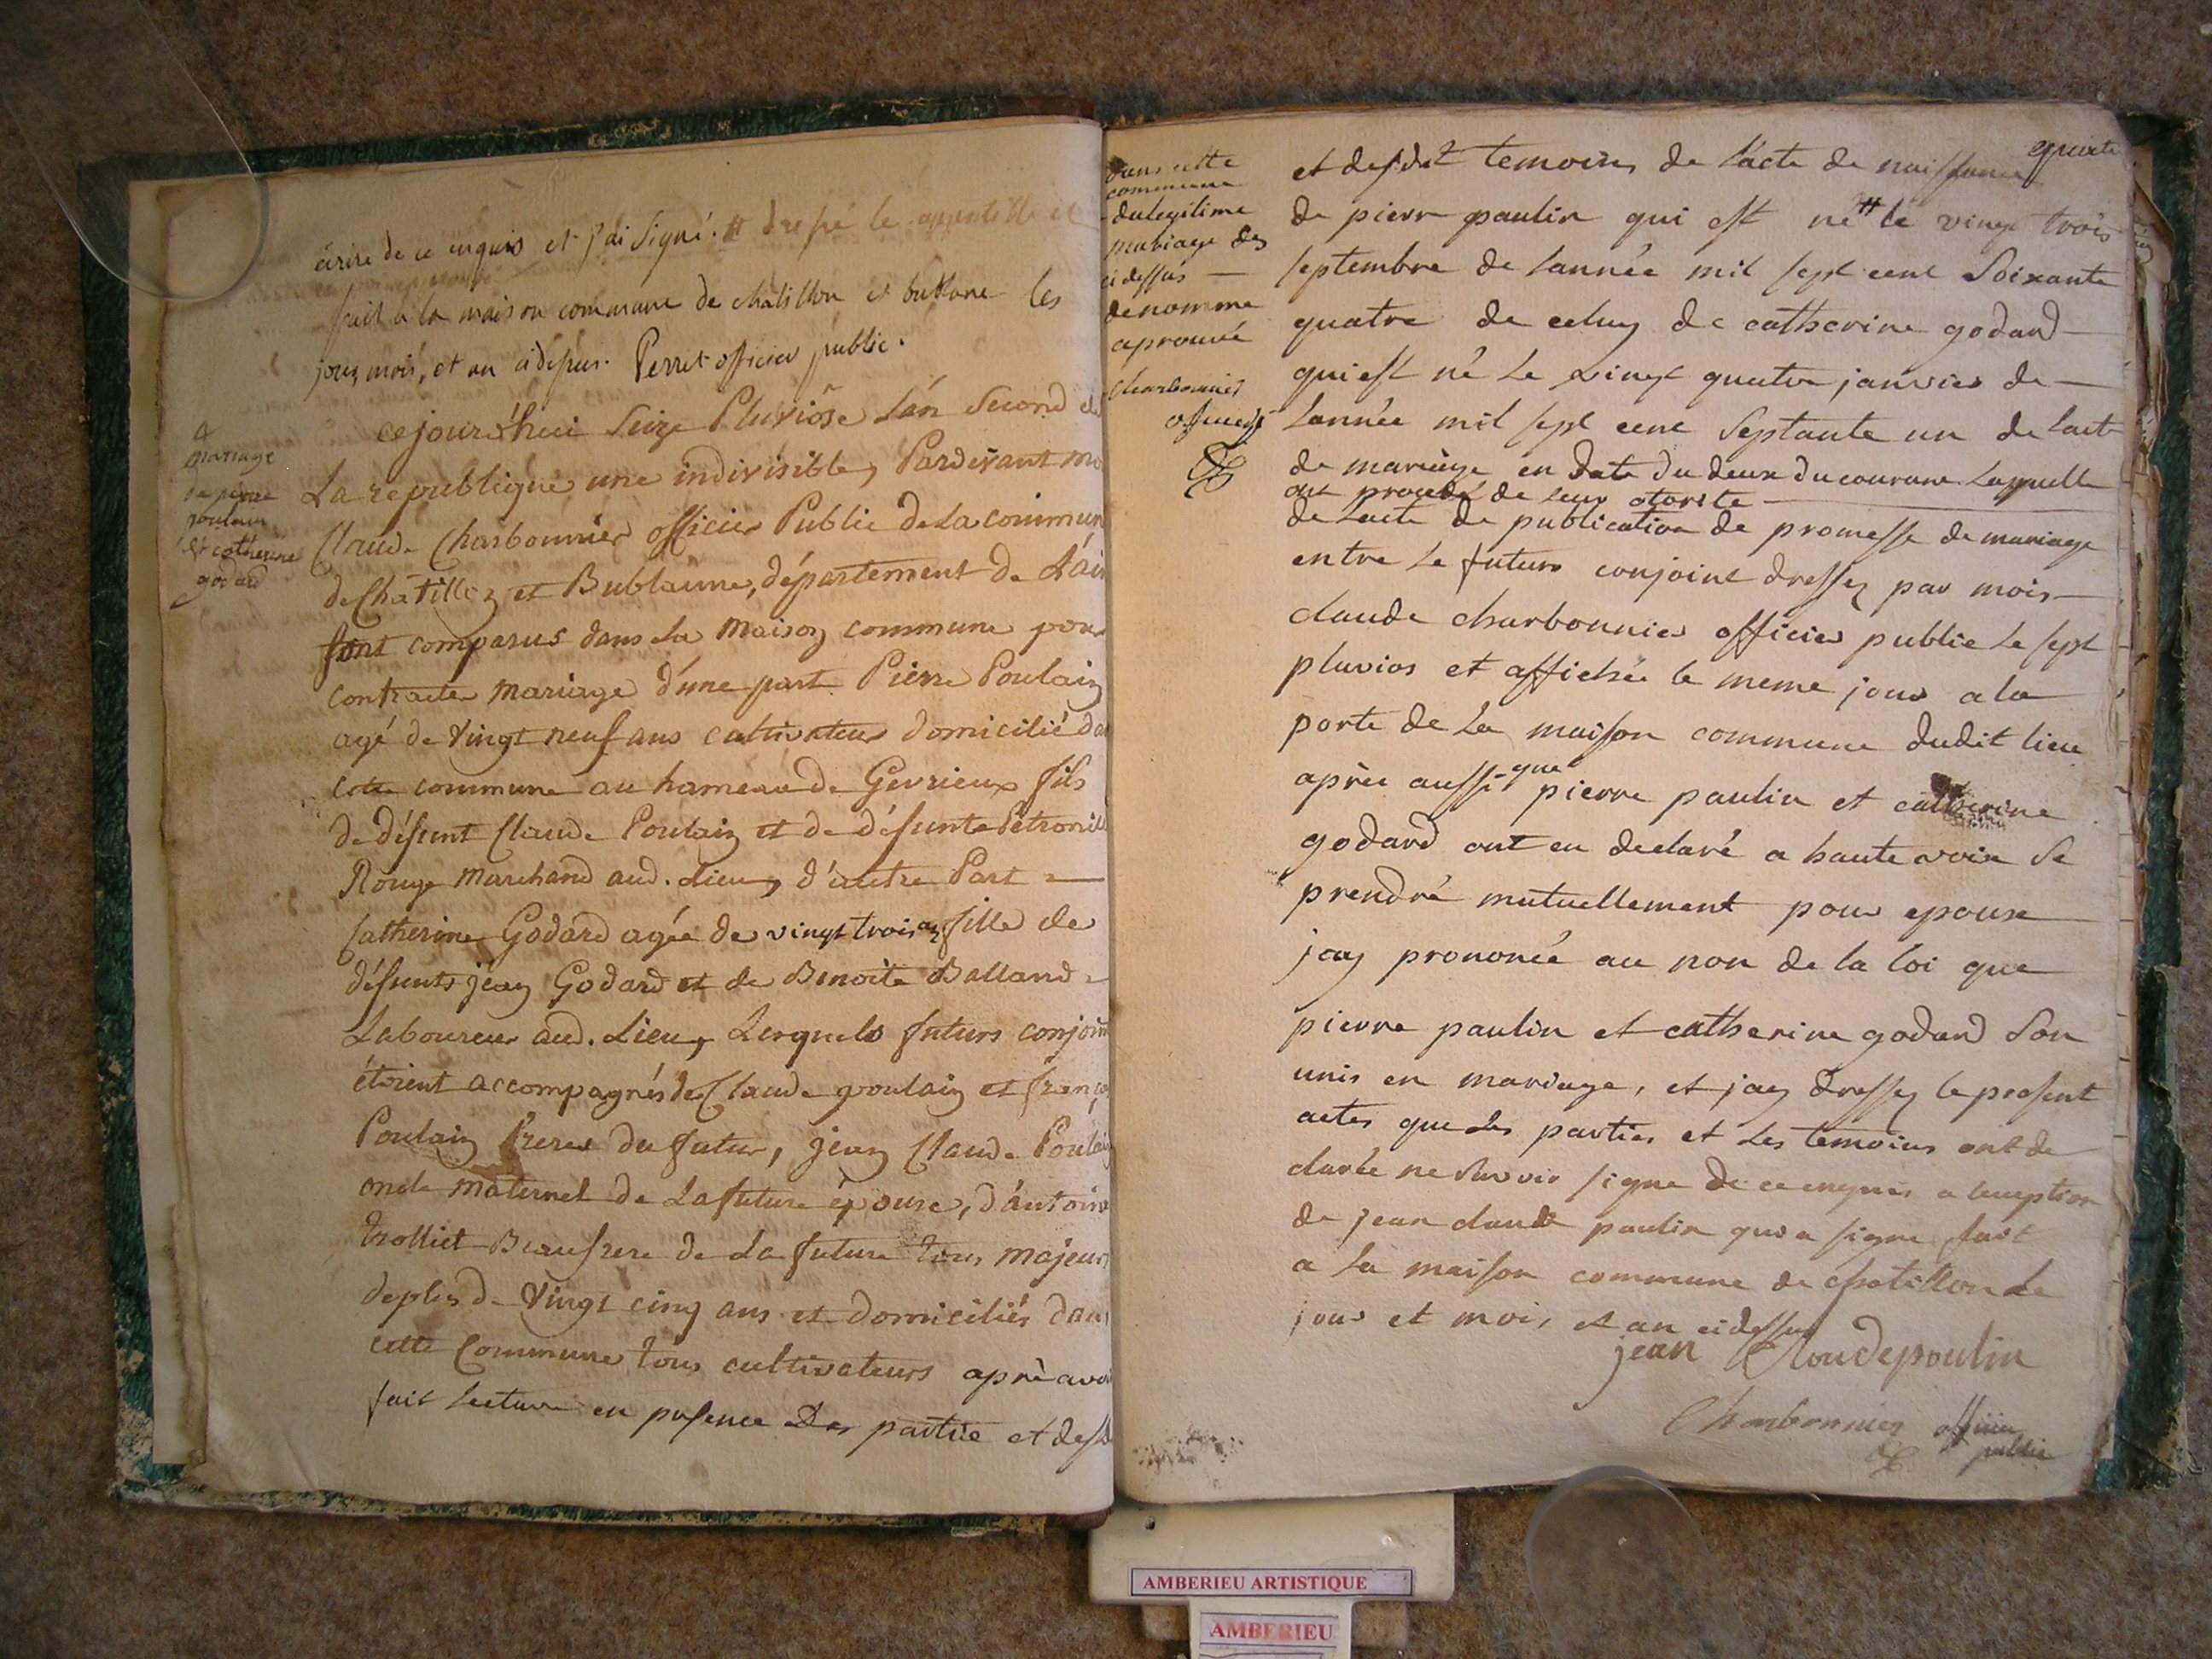 écrire de ce enquis et j'ai signé. # dressé le
fait à la maison commune de châtillon et bublane les
jour, mois, et an cidessus. Perret officier public.
4
mariage
de pierre
poulain
et catherine
godard
cejourd'huei Seize Pluviôse L'án Second de
La republique une indivisible, Pardevant mo
Claude Charbonnier officier Public de La commun
de Châtillon et Bublanne, département de L'ain
sont comparus dans La Maison commune pour
contracter Mariage d'une part Pierre Poulain
agé de Vingt neuf ans cultivateur domicilié da
Cette commune au hameau de Gevrieux fils
de défunt Claude Poulain et de défunte Pétronill
Rouge Marchand aud. Lieu, d'autre Part
Catherine Godard agée de vingt trois ans fille de
défunts jean Godard et de Benoite Balland
Laboureur aud. Lieu, Lesquels futurs conjoin
étoient accompagnés de Claude poulain et franço
Poulain freres du futur, jean Claude Poulain
oncle maternel de La future épouse, d'antoine
trolliet Beaufrere de La future tous majeurs
deplus de Vingt cinq ans et domiciliés dans
cette Commune tous cultivateurs aprè avoi
fait Lecture en presence Des partie et desd
dans cette
commune
du legitime
mariage des
ci dessus
denomme
aprouvé
charbonnier
et desdit temoins de l'acte de naissance
de pierre paulin qui est né # le vingt trois
septembre de Lannée mil sept cent Soixante
quatre de celuy de catherine godard
qui est né Le vingt quatre janvier de
Lannée mil sept cent Septante un de Lact
de mariage en date du deux du courant Laquelle
ont procedé de leur otorité
de Lacte de publication de promesse de mariage
entre Le futurs conjoint dressez par mois
claude charbonnier officier public Le sept
pluvios et affichée le meme jour a la
porte de La maison commune dudit lieu
aprèe aussi que pierre paulin et catherine
godard ont eu declaré a haute voix Se
prendré mutuellement pour epoux
jay prononcé au non de la loi que
pierre paulin et catherine godard Son
unis en mariage, et jay dressez le present
actes que Les parties et Les temoins ont de
clarée ne Savoir signe de ce enquis a lexeption
de jean claude paulin qui a signe fait
a La maison commune de chatillon Le
jour et mois et an cidessus
jean Cloudepoulin
Charbonnier officier
public
AMBERIEU ARTISTIQUE
AMBERIEU